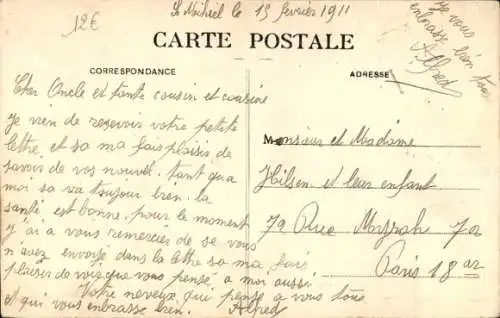 12€
St Mihiel le 15 février 1911
CARTE POSTALE
Je vous
enbrasse bien tous
Alfred
CORRESPONDANCE
ADRESSE
Cher Oncle et tante cousin et cousine
Je vien de resevoir votre petite
lettre, et sa ma fais plaisir de
savoir de vos nouvel. tant qua
moi sa va toujour bien. la
santé est bonne. pour le moment
y ai a vous remercier de se vous
n'avez envoyé dans la lettre sa ma fais
plaisir de voir que vous pensé a moi aussi.
Votre neveux, qui pense a vous tous
et qui vous enbrasse bien. Alfred
Monsieur et Madame
Hilsen et leur enfant
79 Rue 79
Paris 18 ar